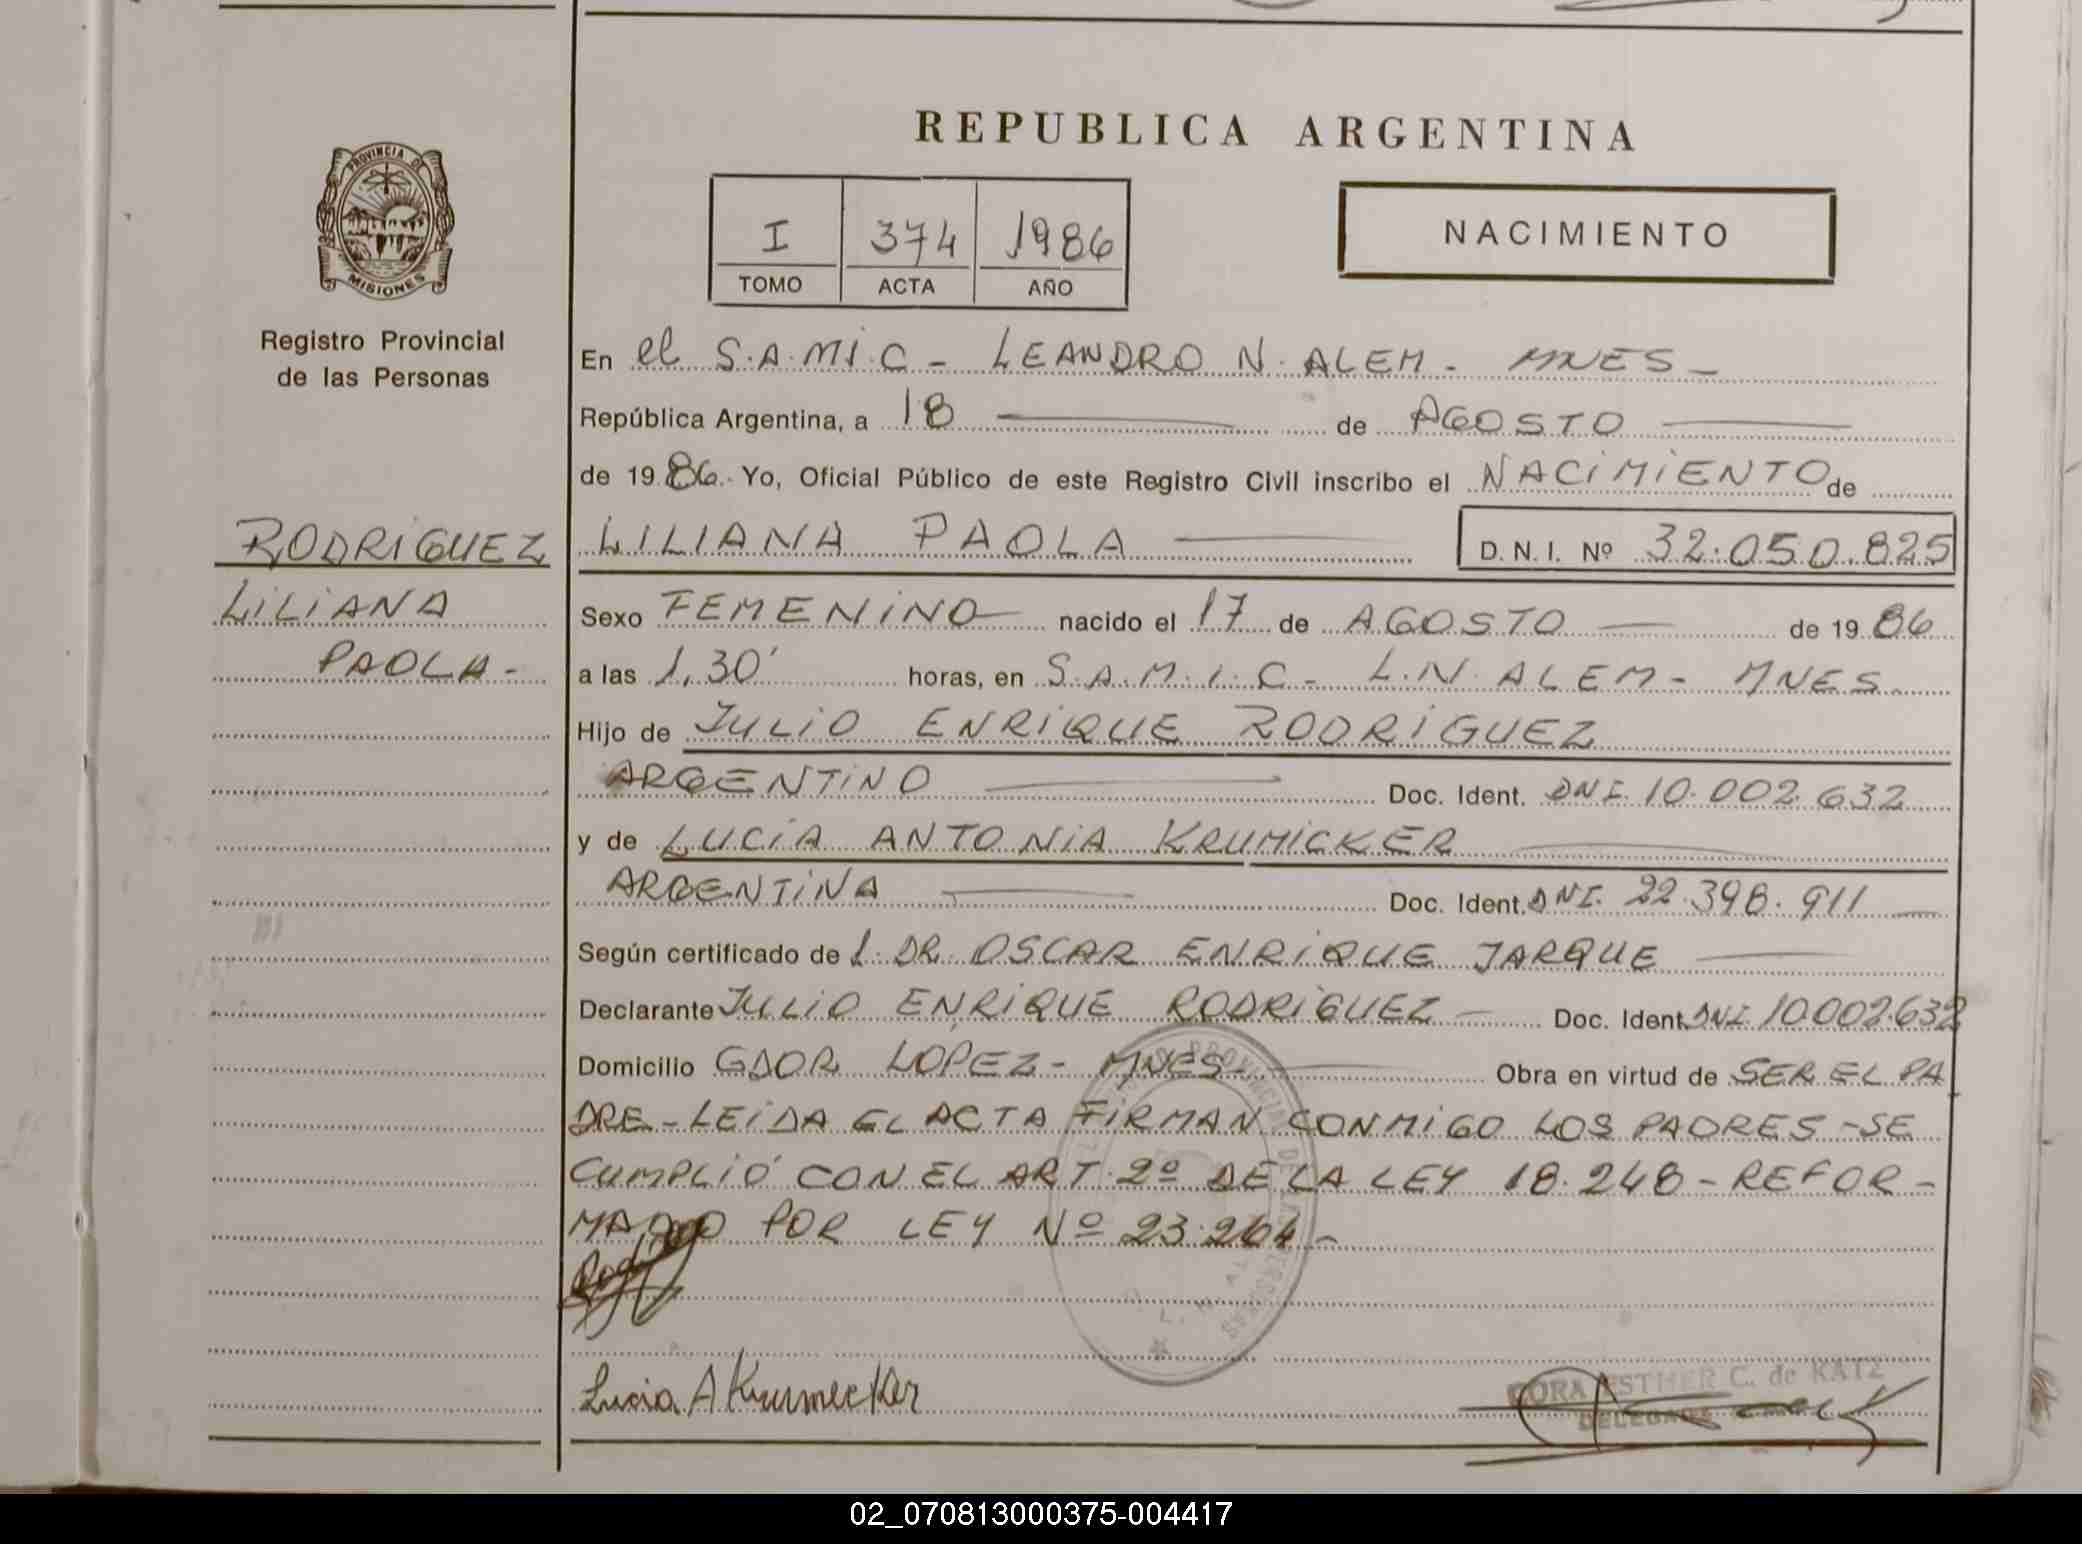 REPUBLICA ARGENTINA
PROVINCIA DE
MISIONES
Registro Provincial
de las Personas
I 374 1986
TOMO ACTA AÑO
NACIMIENTO
En el S.A.M.I.C - LEANDRO N. ALEM - MNES -
República Argentina, a 18 de AGOSTO
de 1986. Yo, Oficial Público de este Registro Civil inscribo el NACIMIENTO de
RODRIGUEZ
LILIANA
PAOLA -
LILIANA PAOLA D. N. I. Nº 32.050.825
Sexo FEMENINO nacido el 17 de AGOSTO de 1986
a las 1,30' horas, en S.A.M.I.C - L.N. ALEM - MNES
Hijo de JULIO ENRIQUE RODRIGUEZ
ARGENTINO Doc. Ident. DNI 10.002.632
y de LUCIA ANTONIA KRUMICKER
ARGENTINA Doc. Ident. DNI. 22.398.911
Según certificado de 1. DR. OSCAR ENRIQUE JARQUE
Declarante JULIO ENRIQUE RODRIGUEZ - Doc. Ident. DNI 10.002.632
Domicilio GDOR LOPEZ - MNES - Obra en virtud de SER EL PA
DRE - LEIDA EL ACTA FIRMAN CONMIGO LOS PADRES - SE
CUMPLIÓ CON EL ART. 2º DE LA LEY 18.248 - REFOR -
MADO POR LEY Nº 23.264 -
Lucia A Krumecker
CORA ESTHER C. de KATZ
DELEGADA
02_070813000375-004417